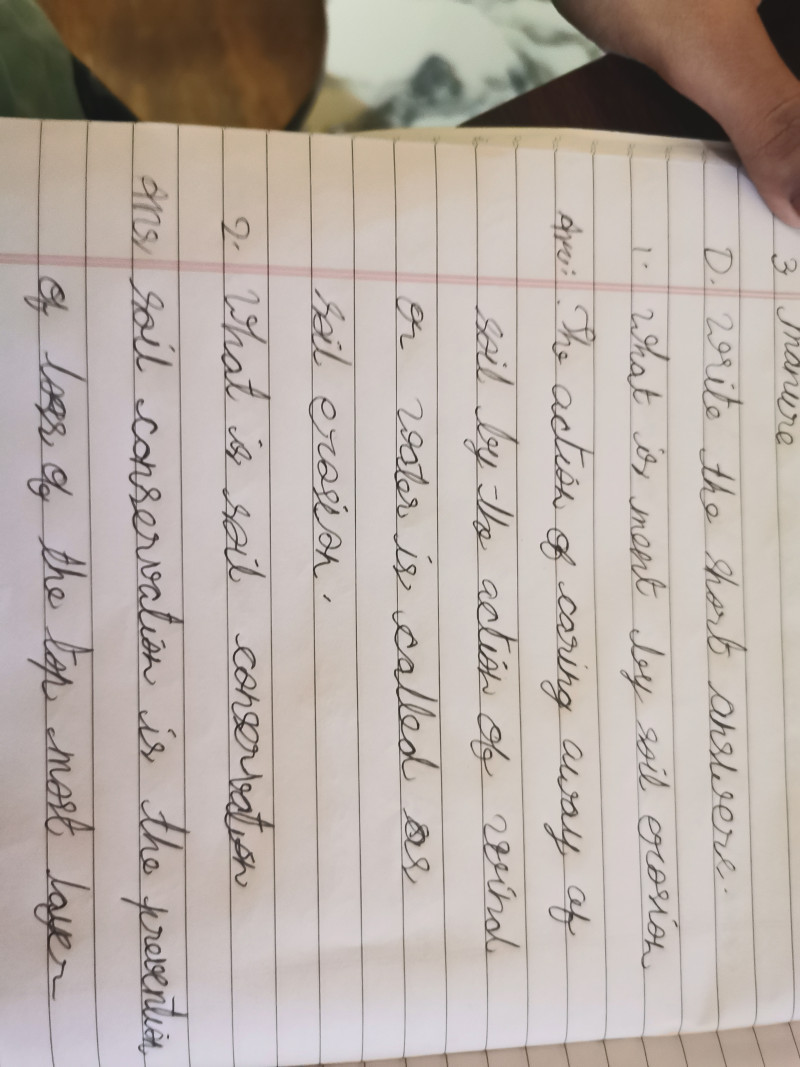 3 Manure
D. Write the short answers.
1. What is ment by soil erosion
Ans: The action of caring away of
soil by the action of wind
or water is called as
soil erosion.
2. What is soil conservation
Ans, soil conservation is the prevention
of loss of the top most layer